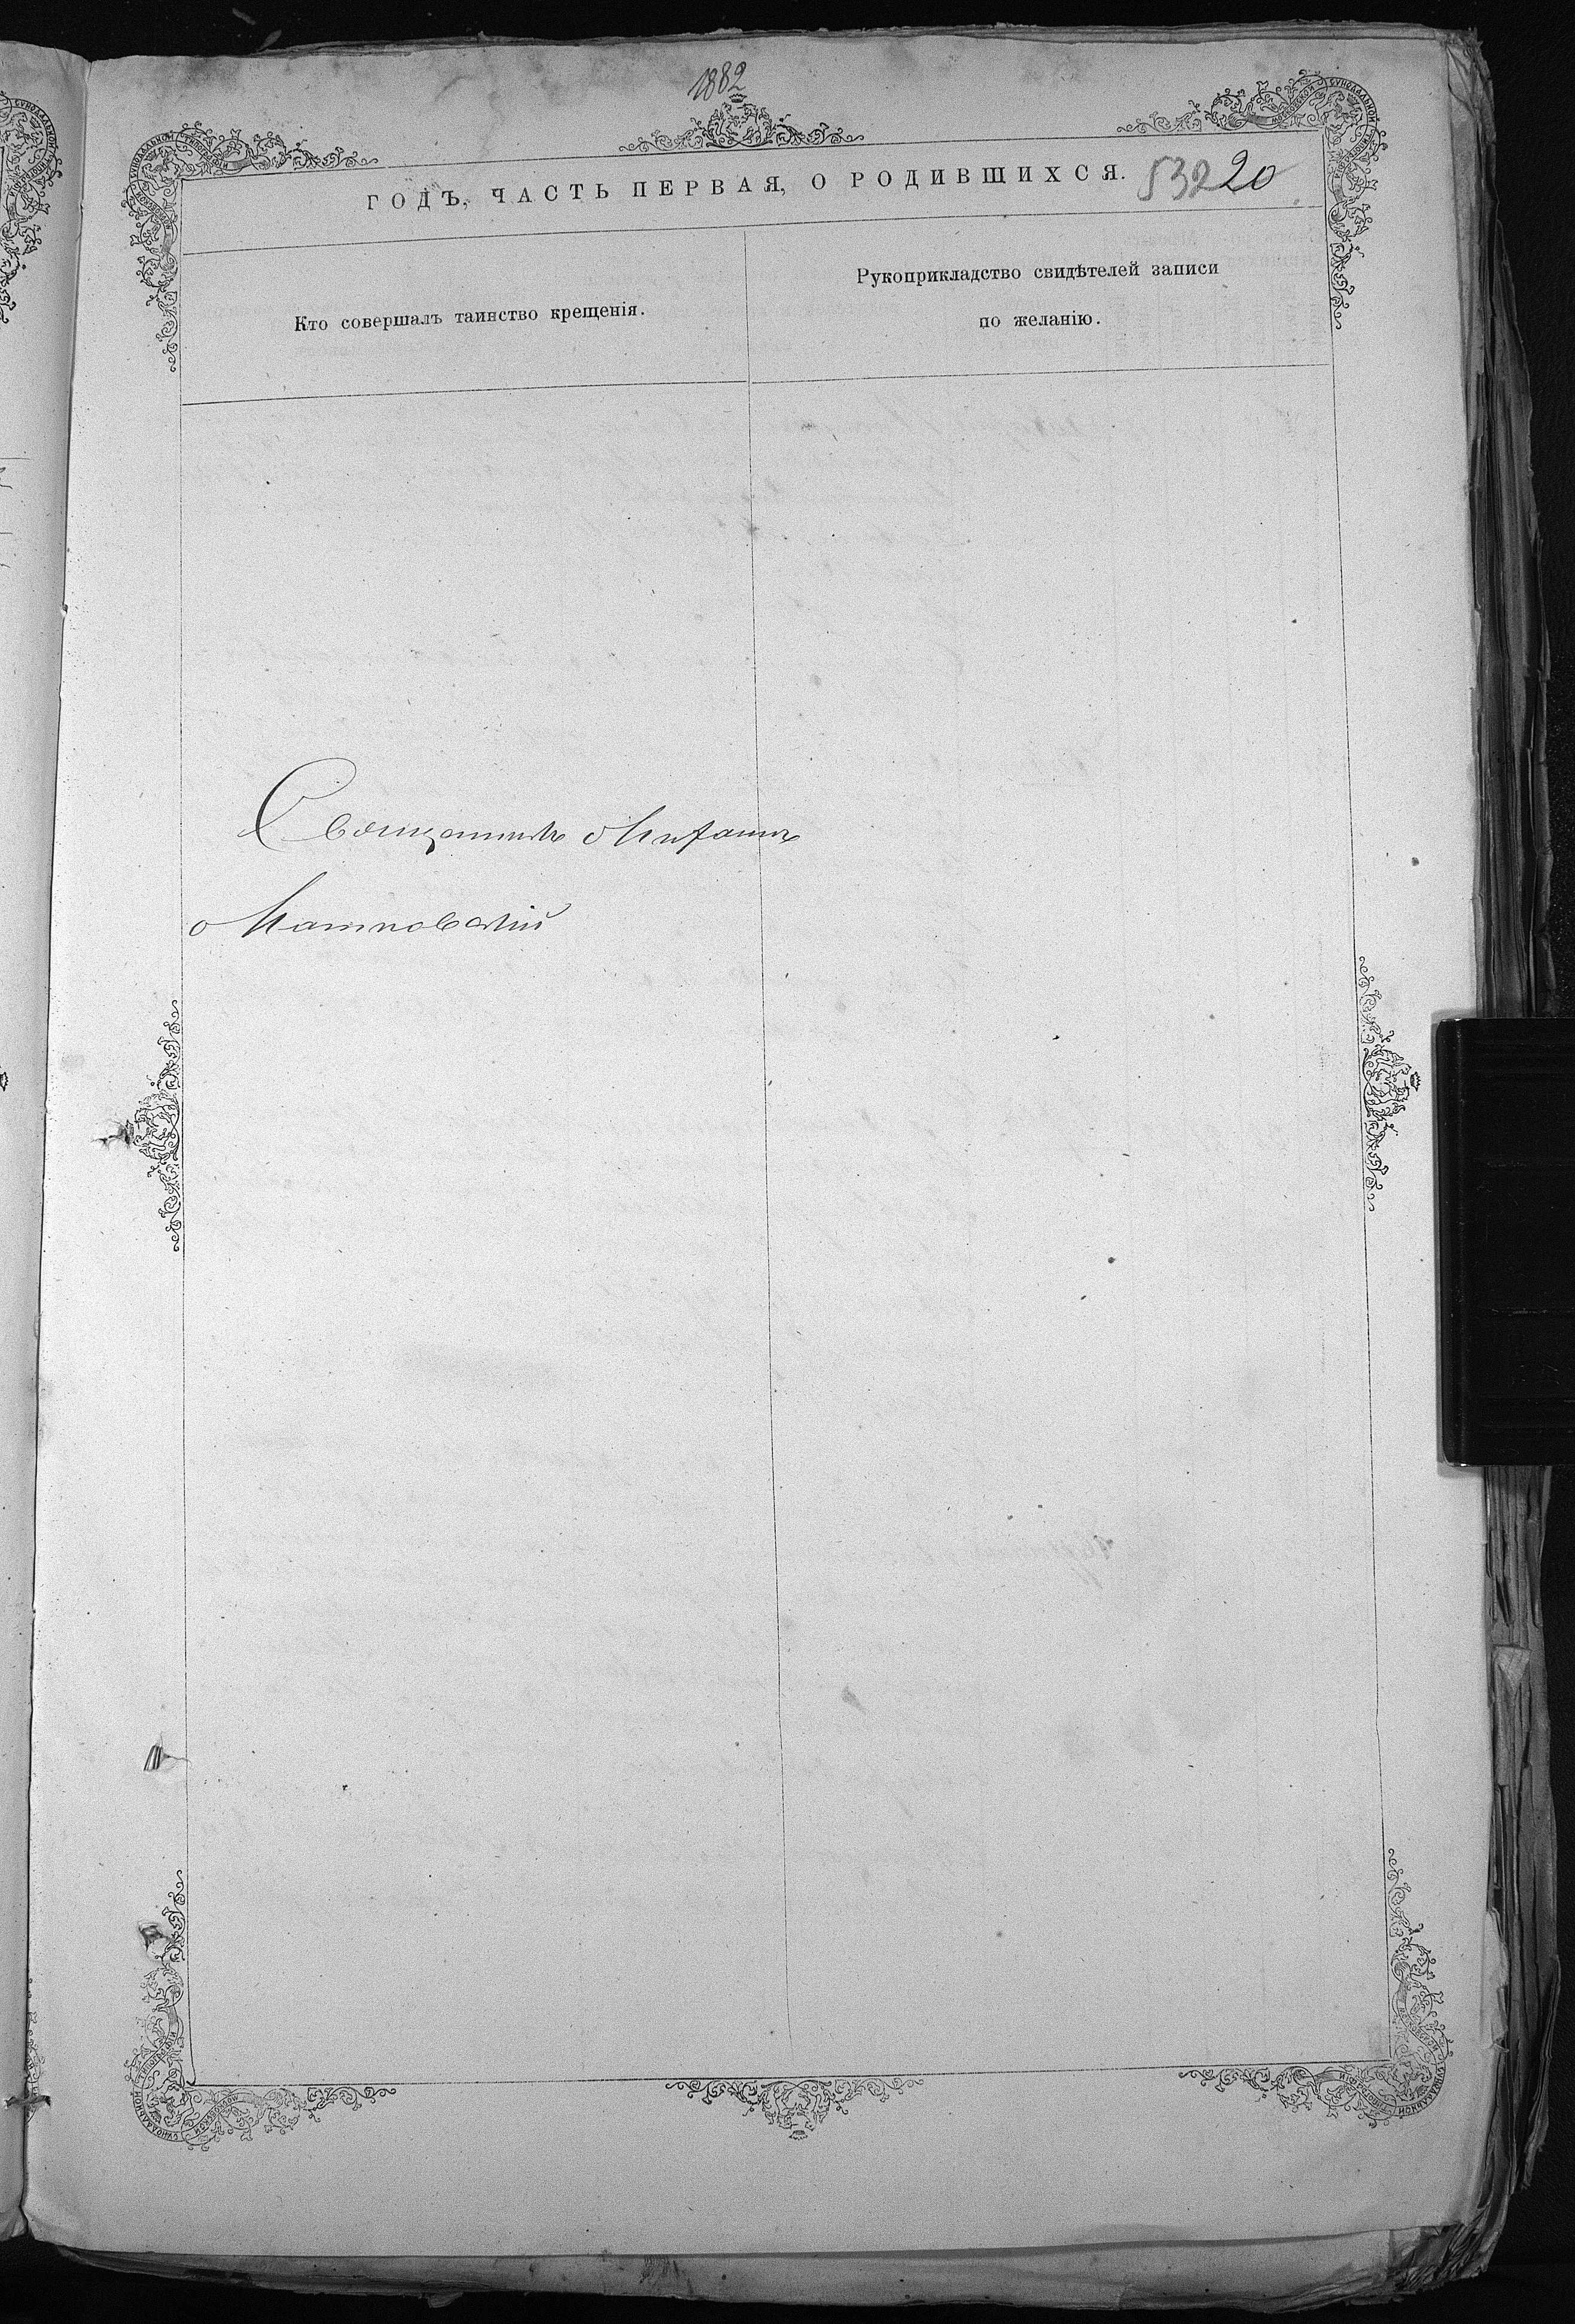 1882
ГОДЪ, ЧАСТЬ ПЕРВАЯ, О РОДИВШИХСЯ.
532 20
Кто совершалъ таинство крещенія.
Рукоприкладство свидѣтелей записи
по желанію.
Священникъ Михаилъ